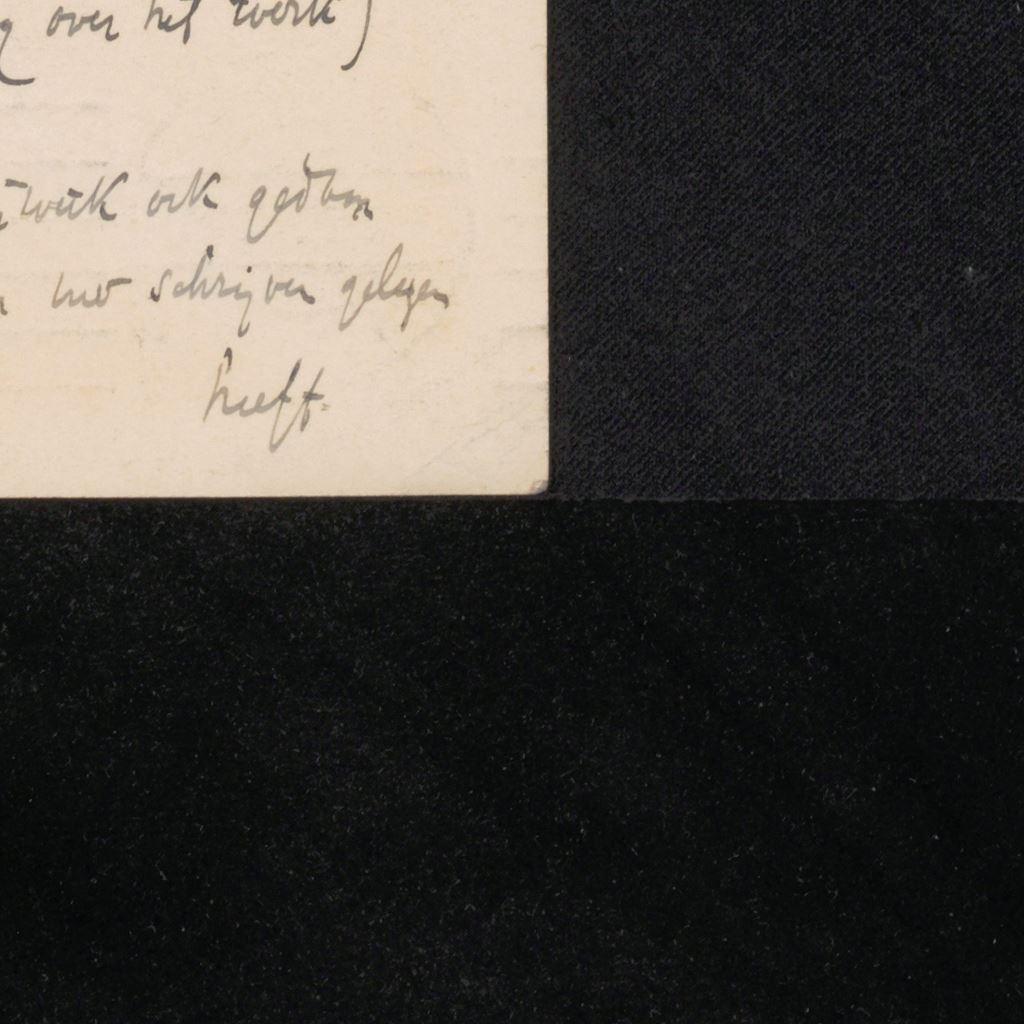 over het werk)
werk ook gedaan
uw schrijven gelegen
heeft.